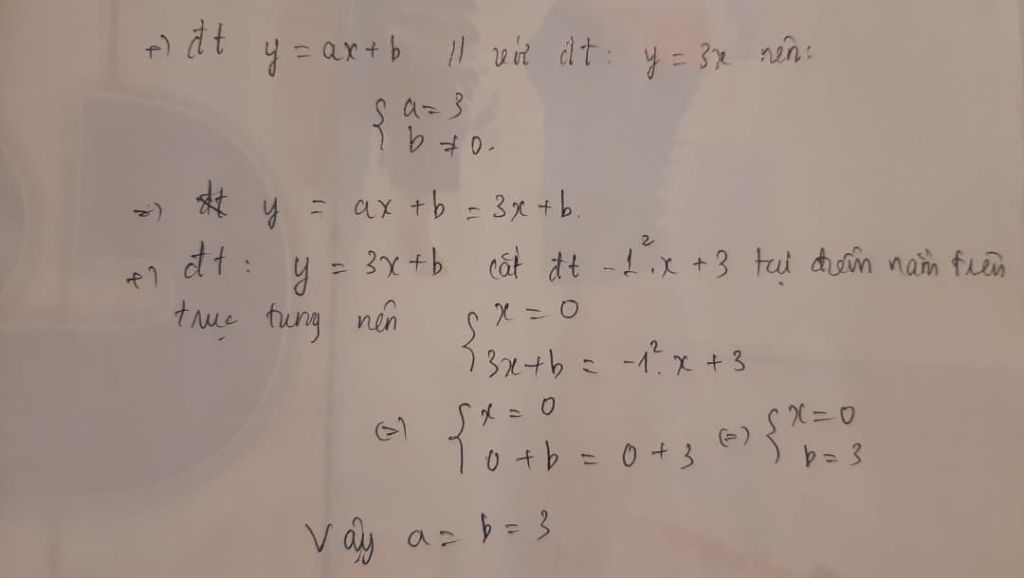 +) đt y = ax + b // với đt: y = 3x nên:
{ a = 3
b ≠ 0.
=) đt y = ax + b = 3x + b.
+) đt: y = 3x + b cắt đt -1².x + 3 tại điểm nằm trên
trục tung nên { x = 0
3x + b = -1².x + 3
(=) { x = 0
0 + b = 0 + 3 (=) { x = 0
b = 3
Vậy a = b = 3